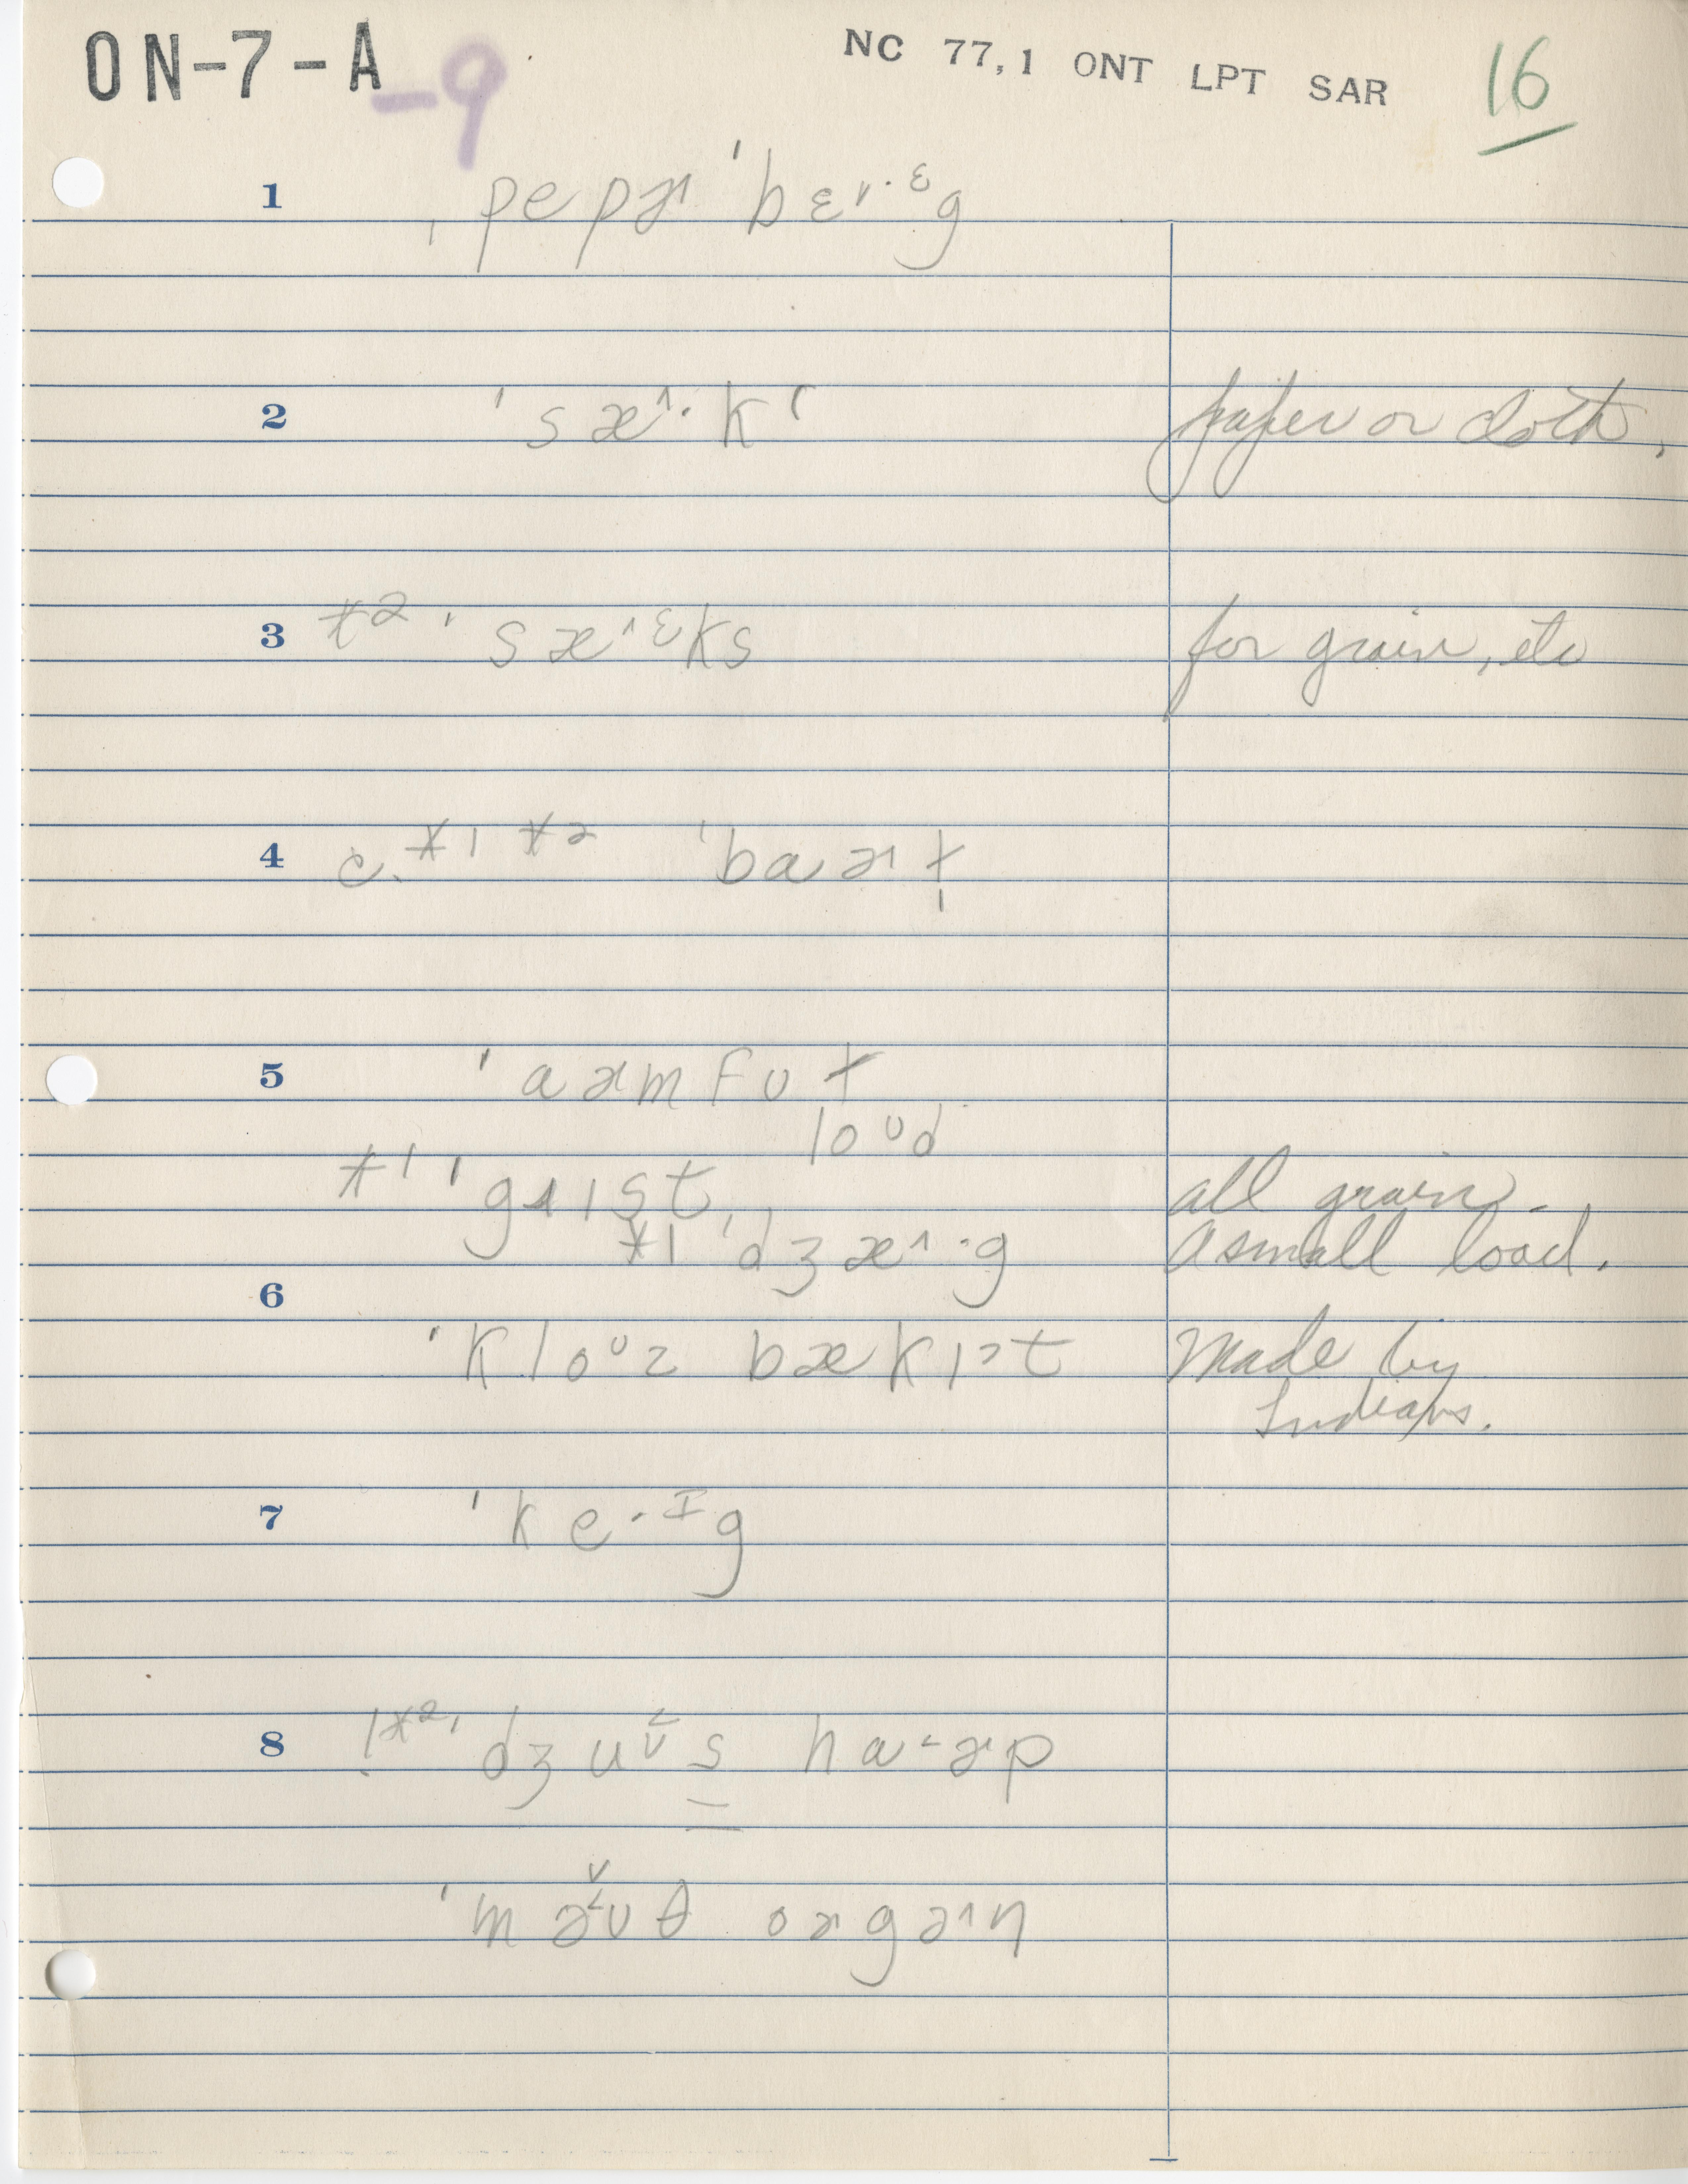 ON-7-A -9 NC 77,1 ONT LPT SAR 16
1 ˌpepɚˈbɛ˅·ᵋg
2 ˈsæ˄·kʻ paper or cloth,
3 *2 ˈsæ˄ᵋks for grain, etc
4 c. *1 *2 ˈbaɚt̩
5 ˈaɚmfʊt
loᶷd
*1 ˈgɹɪst, all grain -
*1 ˈdʒæ˄·g a small load.
6
ˈkloᶷz bæskɪt made by
Indians.
7 ˈke·ᴵg
8 !*2 ˈdʒuᶹs haɚp
ˈmaʊθ ɔɚgən